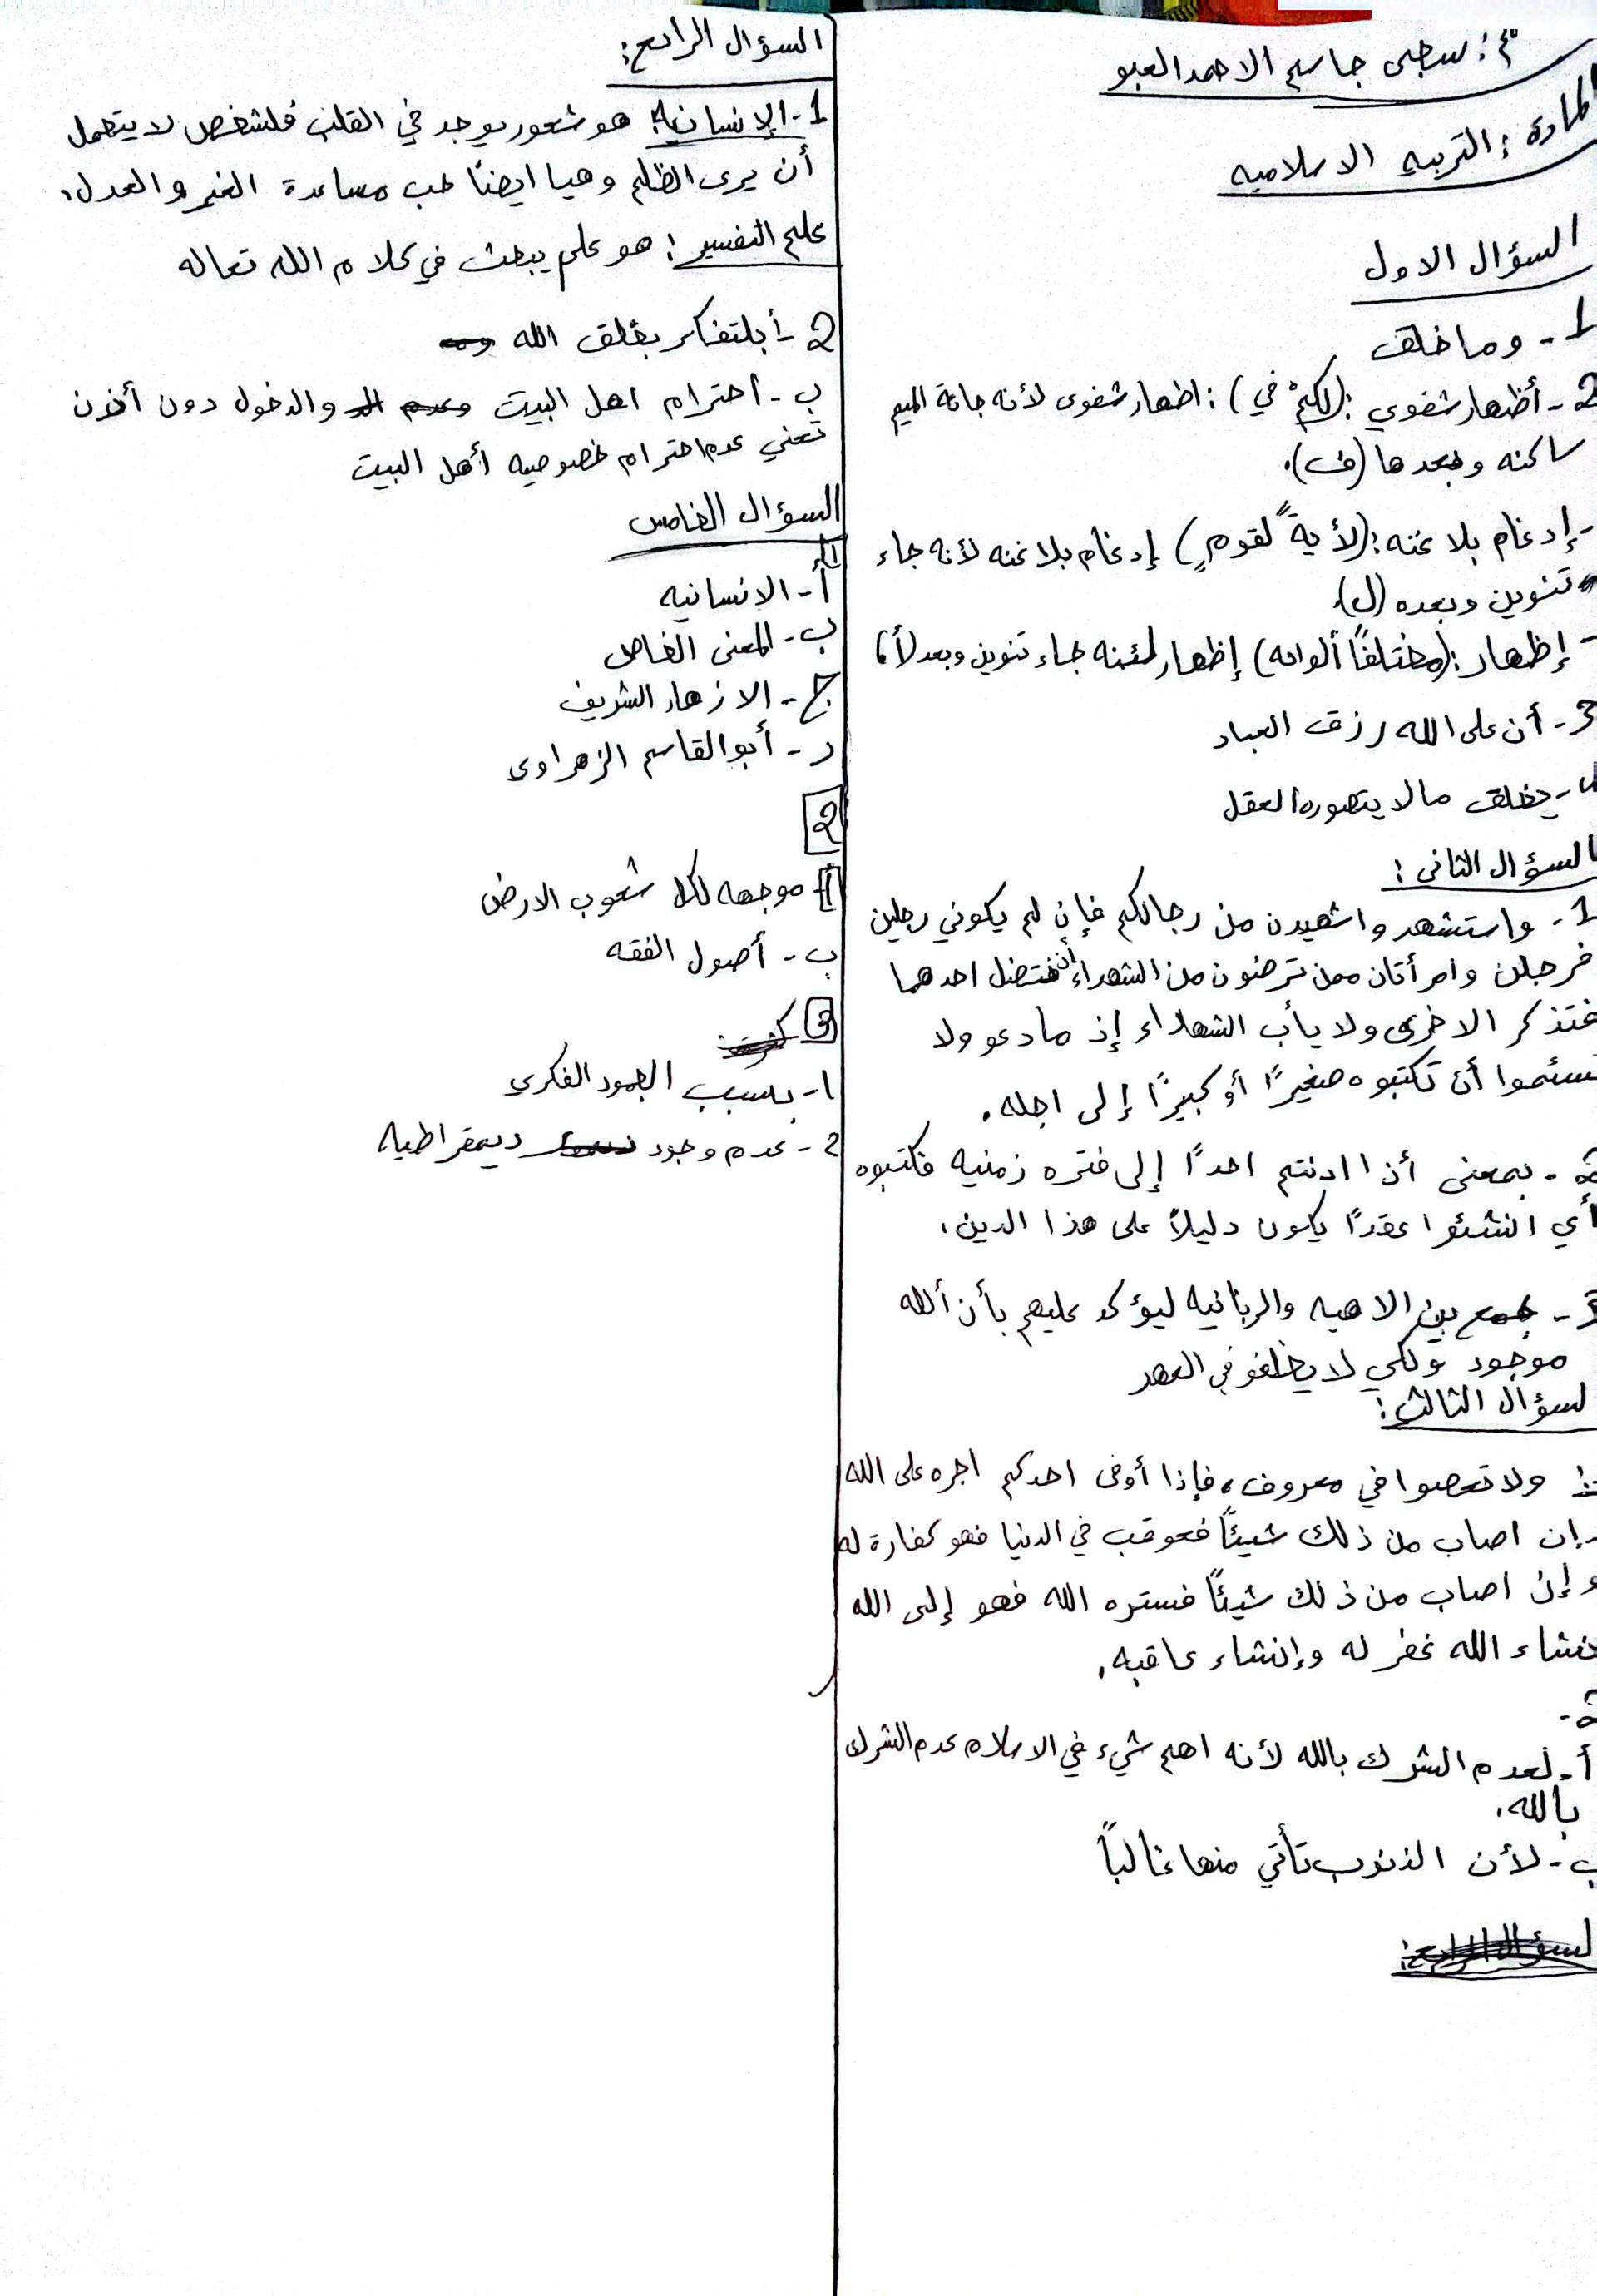 سجى جاسم الاحمد العبو
المادة : التربيه الاسلاميه
السؤال الاول
1 - وما خلق
2 - أظهار شفوي : (لكمْ في) : اظهار شفوى لأنه جائة الميم
ساكنه وبعدها (ف).
- إدغام بلا غنه : (لأيةً لقومٍ) إدغام بلا غنه لأنه جاء
تنوين وبعده (ل).
- إظهار : (مختلفًا ألوانه) إظهار لئنه جاء تنوين وبعد
3 - أن على الله رزق العباد
4 - يخلق مالا يتصوره العقل
السؤال الثاني :
1 - واستشهد واشهيدن من رجالكم فإن لم يكوني رجلين
فرجلن وامرأتان ممن ترضون من الشهداء أن فتضل احدهما
فتذكر الاخرى ولا يأب الشهداء إذ مادعو ولا
تسئموا أن تكتبوه صغيرًا أو كبيرًا إلى اجله .
2 - بمعنى أذا ادنتم احدًا إلى فتره زمنيه فكتبوه
أي انشئوا عقدًا يكون دليلاً على هذا الدين .
3 - جمع بين الاهيه والربانيه ليؤكد عليهم بأن ألله
موجود ولكي لا يخلفو في العهد
السؤال الثالث :
1 - ولا تعصوا في معروف ، فإذا أوفى احدكم اجره على الله
وإن اصاب من ذلك شيئًا فعوقب في الدنيا فهو كفارة له
وإن اصاب من ذلك شيئًا فستره الله فهو إلى الله
إنشاء الله غفر له وإنشاء عاقبه .
2 -
أ - لعدم الشرك بالله لأنه اهم شيء في الاسلام عدم الشرك
بالله .
ب - لأن الذنوب تأتي منها غالبًا
السؤال الرابع :
السؤال الرابع :
1 - الإنسانيه : هو شعور يوجد في القلب فلشخص لا يتحمل
أن يرى الظلم وهيا ايضًا حب مساعدة الغير والعدل .
علم التفسير : هو علم يبحث في كلام الله تعاله
2 - أ بلتفكر بخلق الله
ب - احترام اهل البيت وعدم والدخول دون أذن
تعني عدم احترام خصوصيه أهل البيت
السؤال الخامس
1
أ - الانسانيه
ب - المعنى الخاص
ج - الازهار الشريف
د - أبو القاسم الزهراوى
2
أ - موجهه لكل شعوب الارض
ب - أصول الفقه
3
1 - بسبب الجمود الفكري
2 - عدم وجود ديمقراطيه